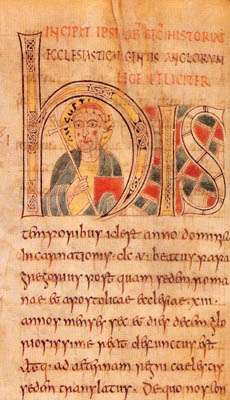 INCIPIT HISTORIAE
ECCLESIASTICAE GENTIS ANGLORUM
FELICITER
hIS
temporibus id est anno domini
incarnationis dc u beatus papa
gregorius postquam sedem roma
nae et apostolicae ecclesiae xiii
annos menses sex et dies decem glo
riosissime rexit defunctus est
atq; ad aeternam regni caelestis
sedem translatus. De quo nos